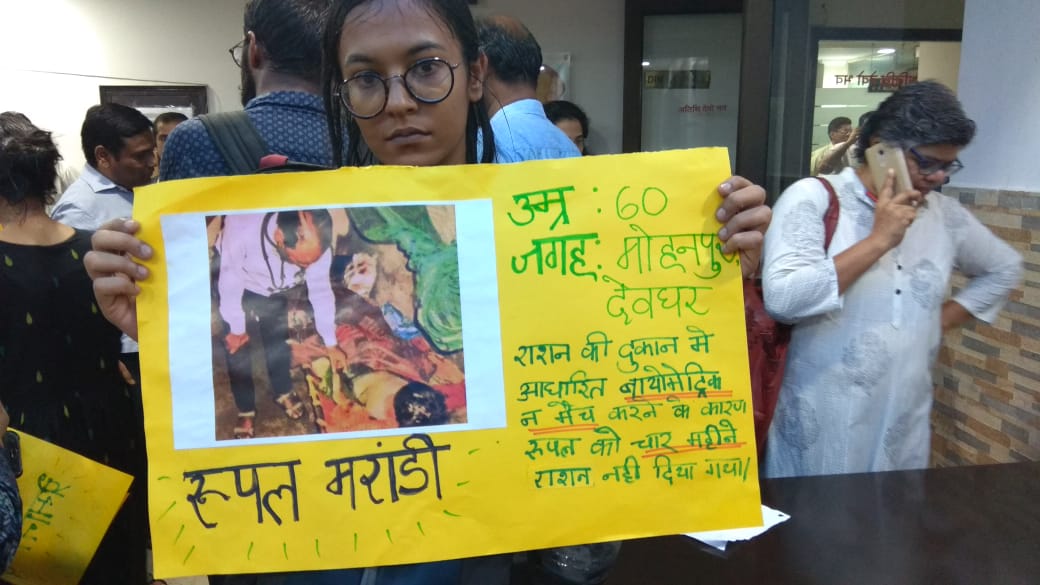 उम्र : 60
जगह : मोहनपुर
देवघर
राशन की दुकान मे
आधारित बायोमेट्रिक
न मैच करने के कारण
रूपल को चार महीने
राशन नहीं दिया गया।
रूपल मरांडी
अतिथि देवो भव
अतिथि देवो भव